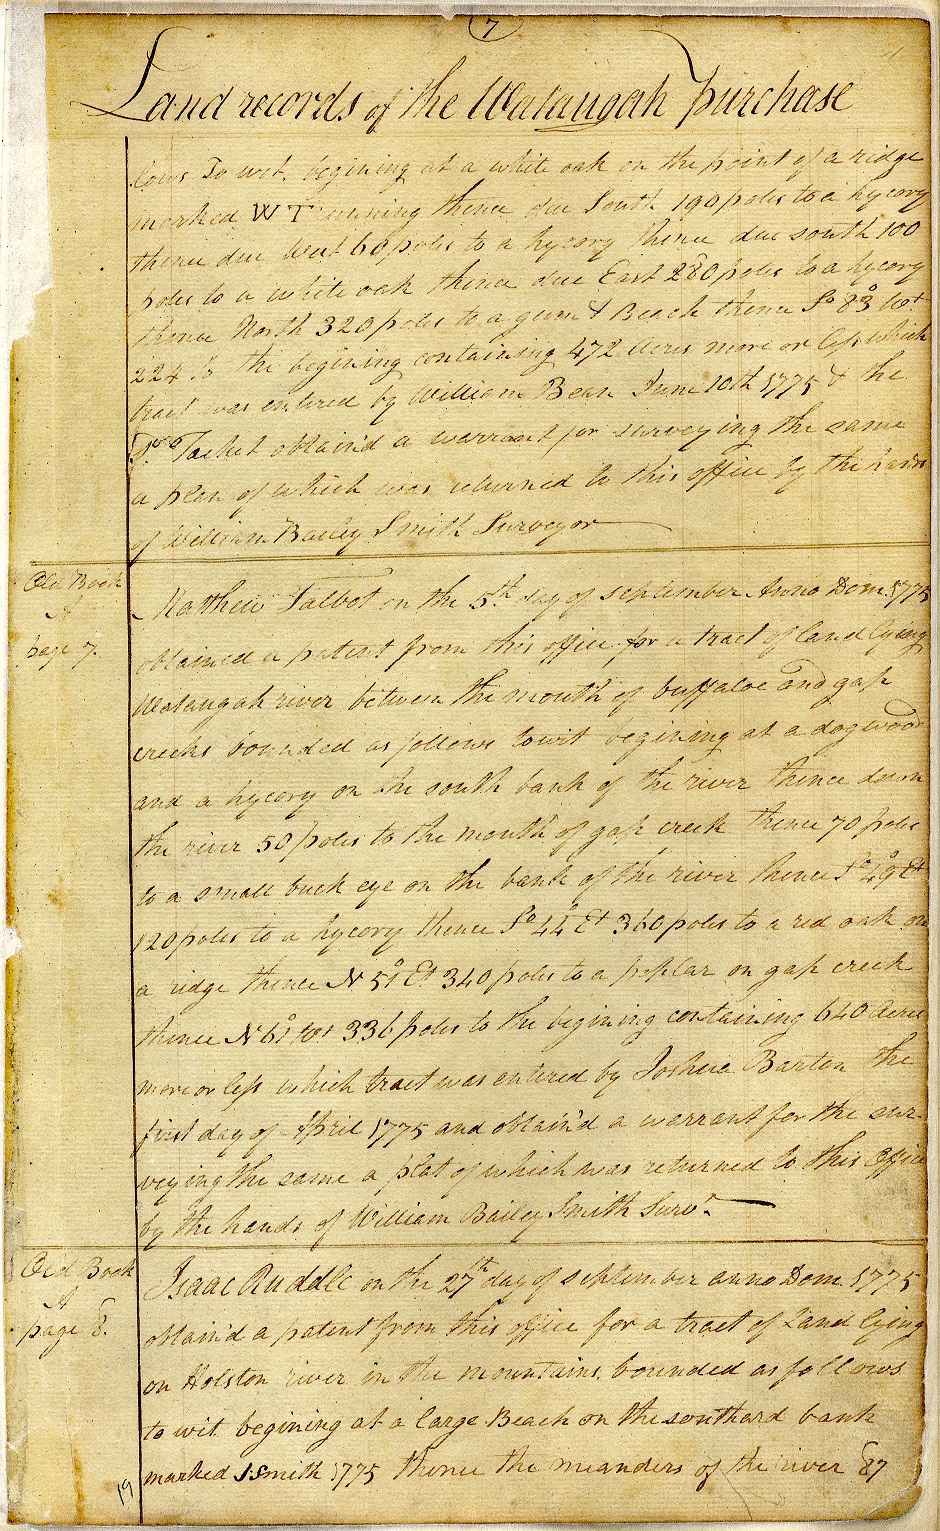 7
Land records of the Wataugah purchase
lows To wit. begining at a white oak on the point of a ridge
marked W T running thence due South 190 poles to a hycory
thence due West 60 poles to a hycory thence due south 100
poles to a white oak thence due East 280 poles to a hycory
thence North 320 poles to a gum & Beach thence So 83° Wt
224 to the begining containing 472 Acres more or less which
tract was entered by William Bean June 10th 1775 & the
Sd Tacket obtaind a warrant for surveying the same
a plan of which was returned to this office by the hands
of William Bailey Smith Surveyor
Old Book
A
page 7.
Matthew Talbot on the 5th day of september Anno Dom 1775
obtained a patent from this office for a tract of land lying
Wataugah river between the mouth of buffaloe and gap
creeks bounded as follows towit begining at a dogwood
and a hycory on the south bank of the river thence down
the river 50 poles to the mouth of gap creek thence 70 poles
to a small buck eye on the bank of the river thence So 49° Et
120 poles to a hycory thence So 44° Et 360 poles to a red oak on
a ridge thence N 51° Et 340 poles to a poplar on gap creek
thence N 61° Wt 336 poles to the begining containing 640 Acres
more or less which tract was entered by Joshua Barton the
first day of April 1775 and obtain'd a warrant for the sur
veying the same a plat of which was returned to this Office
by the hands of William Bailey Smith Survr
Old Book
A
page 8.
Isaac Ruddle on the 27th day of september anno Dom 1775
obtain'd a patent from this office for a tract of Land lying
on Holston river in the mountains, bounded as follows
to wit begining at a large Beach on the southard bank
marked J Smith 1775 thence the meanders of the river 87
19